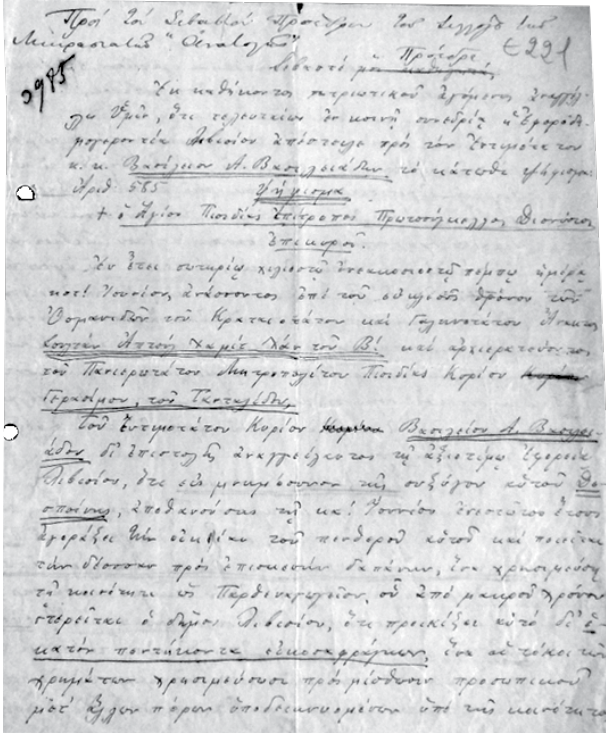 Πρὸς τὸν Σεβαστὸν Πρόεδρον τοῦ Συλλόγου τῶν
Μικρασιατῶν "Ἀνατολῆς"
Πρόεδρε
€221
Σεβαστέ μοι
3985
Ἐκ καθήκοντος πατριωτικοῦ ἀγόμενος ἀναγγέλ-
λω Ὑμῖν, ὅτι τελευταίως ἐν κοινῇ συνεδρίᾳ ἡ Ἐφοροδη-
μογεροντία Λιβισίου ἀπέστειλε πρὸς τὸν ἐντιμότατον
κ. κ. Βασίλειον Α. Βασιλειάδην τὸ κάτωθι ψήφισμα
Ἀριθ. 585 Ψήφισμα
+ ὁ Ἅγιος Πισιδίας ἐπίτροπος Πρωτοσύγκελλος Διονύσιος
ἐπικυροῖ.
Ἐν ἔτει σωτηρίῳ χιλιοστῷ ἐνεακοσιοστῷ πέμπτῳ ἡμέρᾳ
Ἰουνίου, ἀνάσσοντος ἐπὶ τοῦ εὐκλεοῦς θρόνου τῶν
Ὀθωμανιδῶν τοῦ Κραταιοτάτου καὶ Γαληνοτάτου Ἄνακτος
Χαμὶτ Χὰν τοῦ Β! καὶ ἀρχιερατεύοντος
τοῦ Πανιερωτάτου Μητροπολίτου Πισιδίας Κυρίου
Γερασίμου, τοῦ Τανταλίδου,
Τοῦ Ἐντιμοτάτου Κυρίου Βασιλείου Α. Βασιλει-
άδου δι' ἐπιστολῆς ἀναγγείλαντος τῇ ἀξιοτίμῳ Ἐφορείᾳ
Λιβισίου, ὅτι εἰς μνημόσυνον τῆς συζύγου αὐτοῦ Δε-
σποίνης, ἀποθανούσης τῇ κα! Ἰουνίου ἐνεστῶτος ἔτους
ἀγοράζει τὴν οἰκίαν τοῦ πενθεροῦ αὐτοῦ καὶ ποιεῖται
τὴν δέουσαν πρὸς ἐπισκευὴν δαπάνην, ἵνα χρησιμεύσῃ
τῇ κοινότητι ὡς Παρθεναγωγεῖον, οὗ ἀπὸ μακροῦ χρόνου
στερεῖται ὁ δῆμος Λιβισίου, ὅτι προικίζει αὐτὸ δι' ἑ-
κατὸν πεντήκοντα εἰκοσαφράγκων, ἵνα οἱ τόκοι τῶν
χρημάτων χρησιμεύσωσι πρὸς μίσθωσιν προσωπικοῦ
μετ' ἄλλων πόρων ὑποδεικνυομένων ὑπὸ τῆς κοινότητος